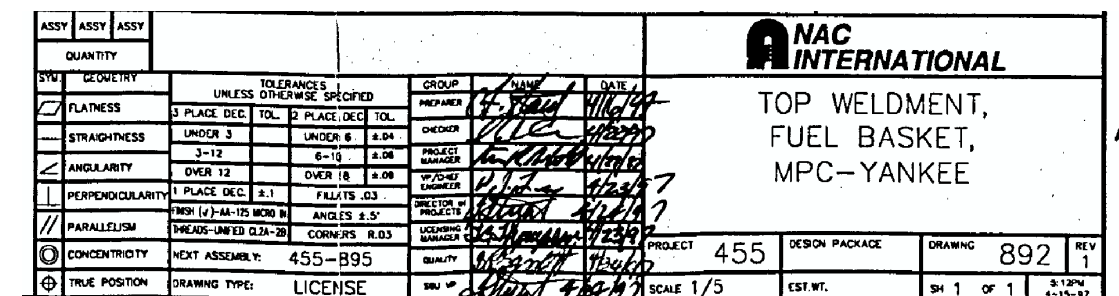 ASSY ASSY ASSY
QUANTITY
SYM. GEOMETRY
FLATNESS
STRAIGHTNESS
ANGULARITY
PERPENDICULARITY
PARALLELISM
CONCENTRICITY
TRUE POSITION
TOLERANCES
UNLESS OTHERWISE SPECIFIED
3 PLACE DEC. TOL. 2 PLACE DEC. TOL.
UNDER 3 UNDER 6 ±.04
3-12 6-18 ±.06
OVER 12 OVER 18 ±.09
1 PLACE DEC. ±.1 FILLETS .03
FINISH (√)-AA-125 MICRO IN. ANGLES ±.5°
THREADS-UNIFIED CL2A-2B CORNERS R.03
NEXT ASSEMBLY: 455-895
DRAWING TYPE: LICENSE
GROUP NAME DATE
PREPARER
CHECKER 4/22/97
PROJECT MANAGER
VP/CHIEF ENGINEER 4/23/97
DIRECTOR OF PROJECTS
LICENSING MANAGER 4/23/97
QUALITY
SBU VP
NAC
INTERNATIONAL
TOP WELDMENT,
FUEL BASKET,
MPC-YANKEE
PROJECT 455 DESIGN PACKAGE DRAWING 892 REV 1
SCALE 1/5 EST.WT. SH 1 OF 1 5:12PM
4-15-97